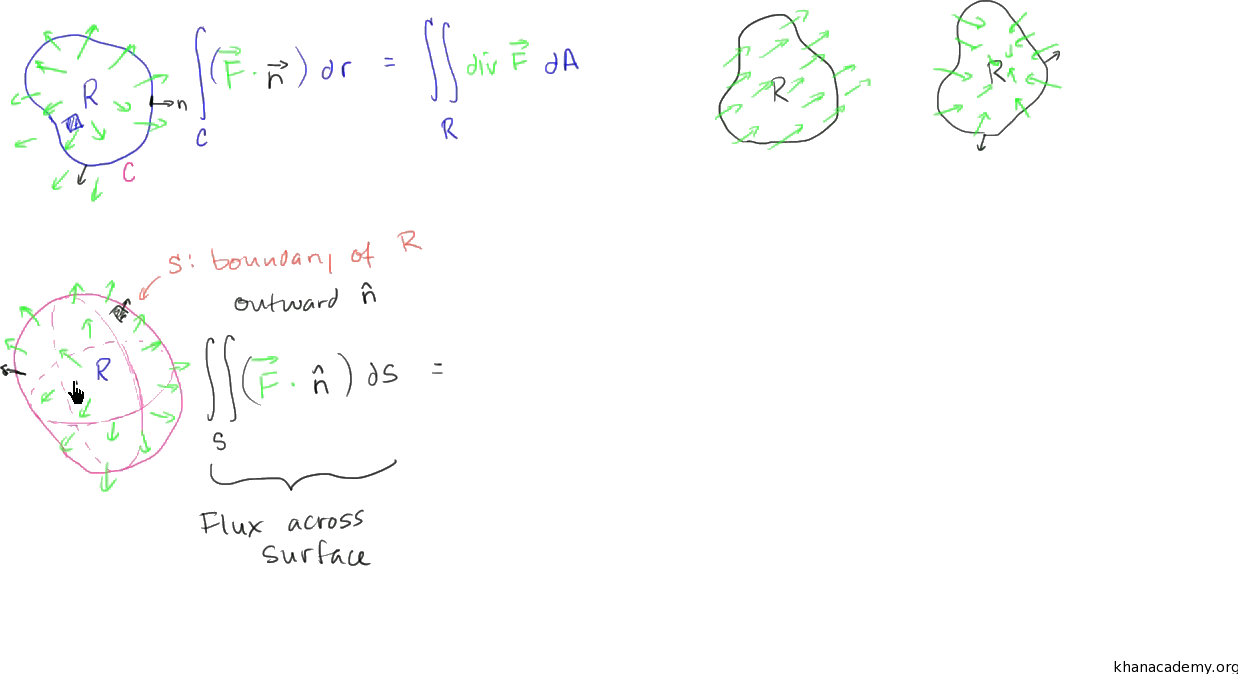 R n C
∫_C (F⃗ · n⃗) dr = ∬_R div F⃗ dA
R
R
S: boundary of R
outward n̂
R
∬_S (F⃗ · n̂) dS =
Flux across
surface
khanacademy.org